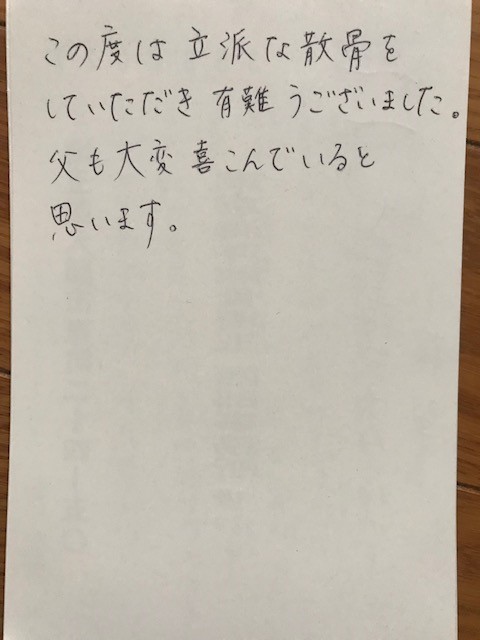 この度は立派な散骨を
していただき有難うございました。
父も大変喜こんでいると
思います。